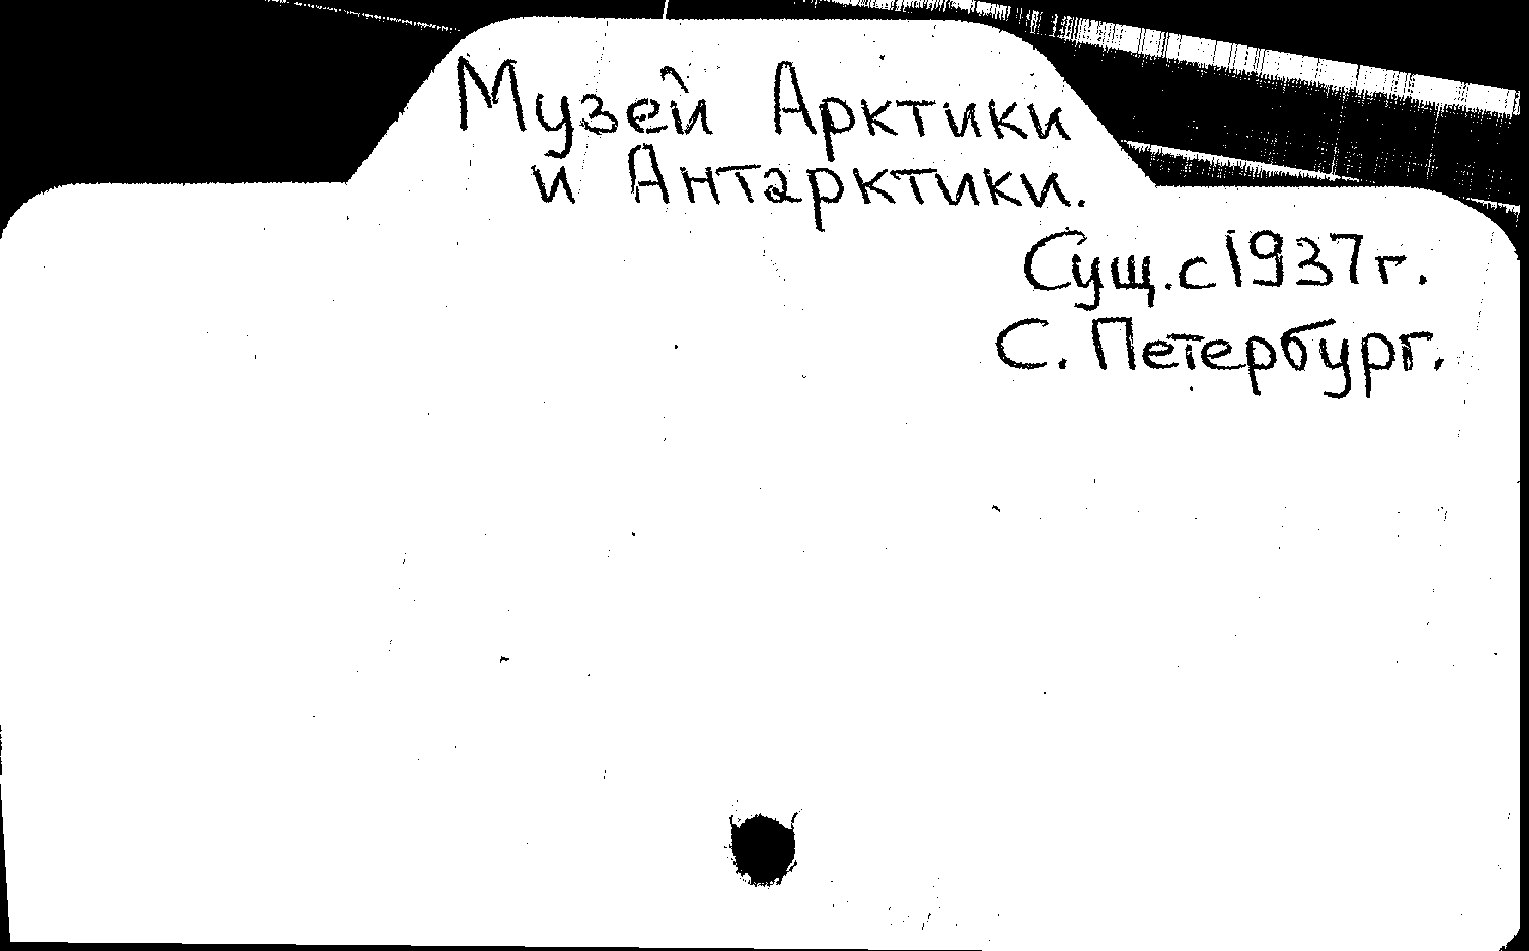 Музей Арктики
и Антарктики.
Сущ. с 1937 г.
С. Петербург.